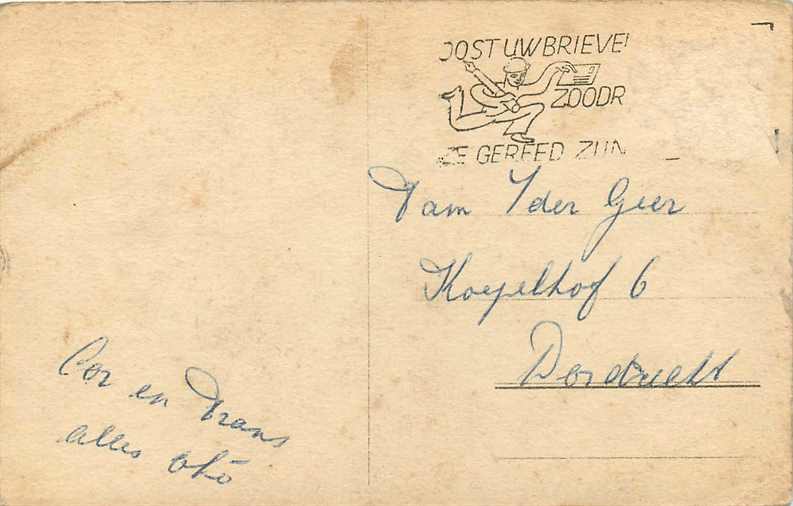 OST UW BRIEVE
ZOODR
ZE GEREED ZIJN
Fam v der Geer
Koepelhof 6
Dordrecht
Cor en Frans
alles oké